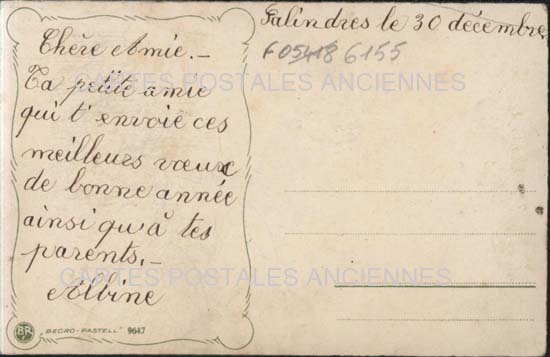 Salindres le 30 décembre.
F05418 6155
Chère Amie. –
Ta petite amie
qui t'envoie ces
meilleurs vœux
de bonne année
ainsi qu'à tes
parents. –
Albine
CARTES POSTALES ANCIENNES
CARTES POSTALES ANCIENNES
BR
"BECRO-PASTELL" 9647